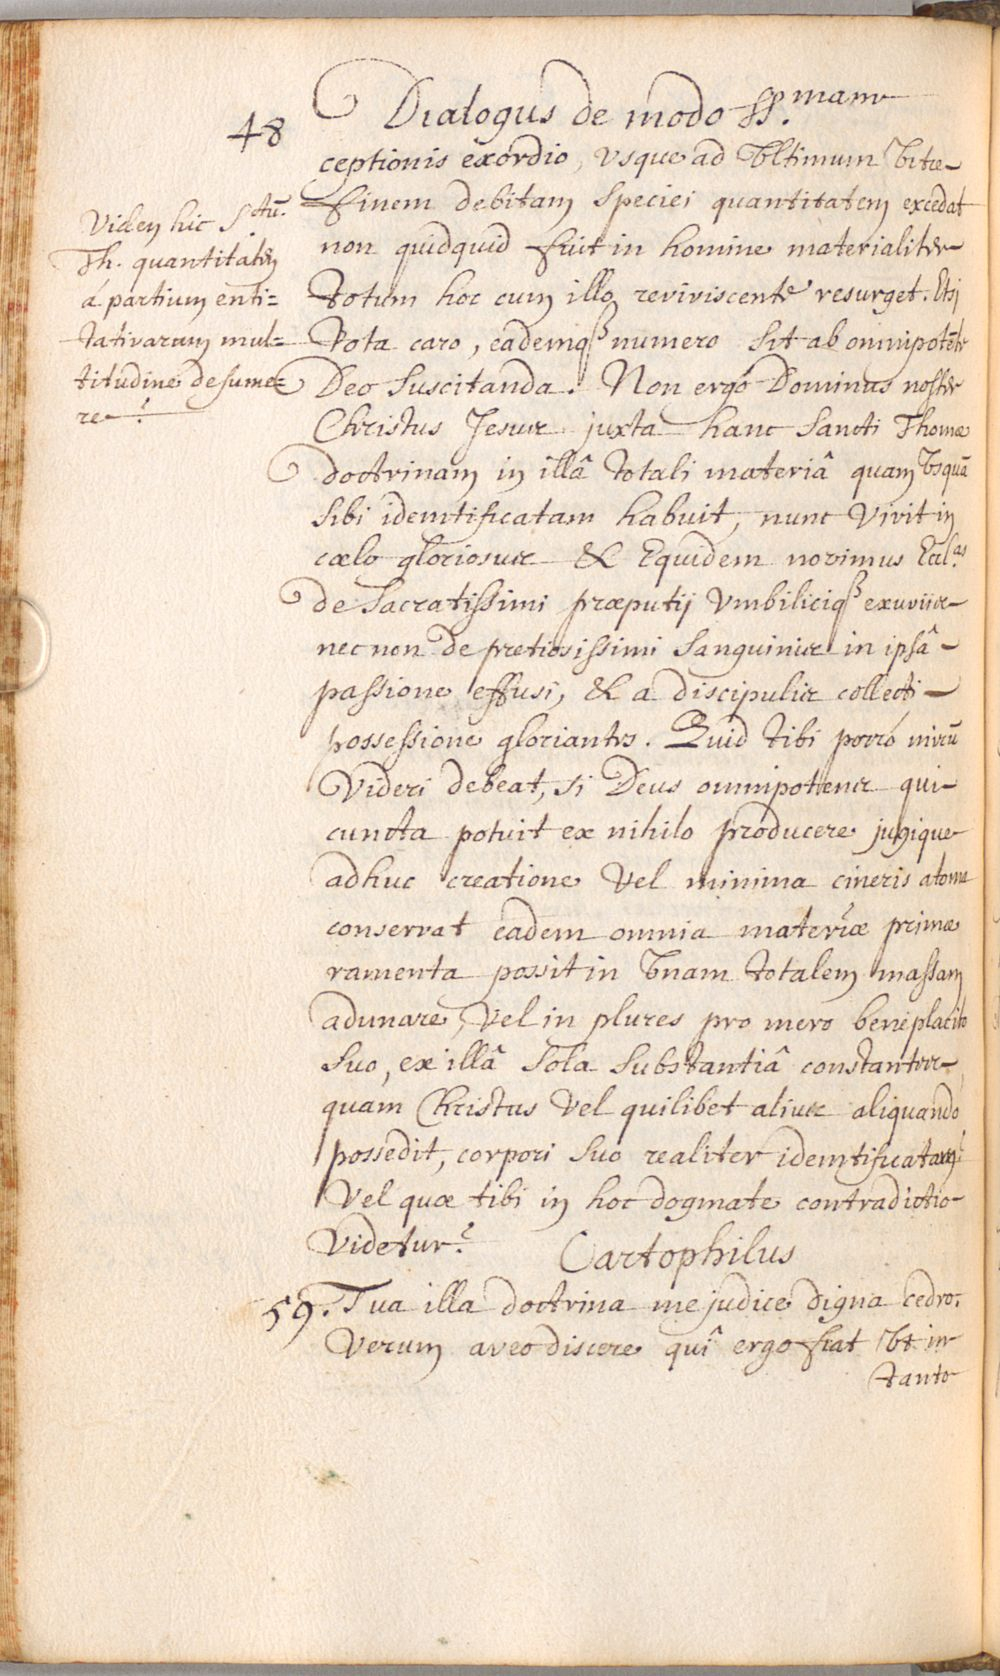 48
Dialogus de modo
ceptionis exordio, vsque ad Vltimum Vitæ
finem debitam speciei quantitatem excedat
non quidquid fuit in homine materialiter
totum hoc cum illo reviviscente resurget. Etsi
tota caro, eademq3 numero sit ab omnipotẽte
Deo suscitanda. Non ergó Dominus noster
Christus Jesus juxta hanc Sancti Thomæ
doctrinam in illâ totali materiâ quam Vsquã
sibi identificatam habuit, nunc Vivit in
cælo gloriosus & Equidem novimus Eccl.as
de Sacratissimi præputij Vmbiliciq3 exuviis
nec non de pretiosissimi Sanguinis in ipsâ
passione effusi, & a discipulis collecti
possessione gloriantes. Quid tibi porró mirũ
Videri debeat, si Deus omnipotens qui
cuncta potuit ex nihilo producere jugique
adhuc creatione Vel minima cineris atoma
conservat eadem omnia materiæ primæ
ramenta possit in Vnam totalem massam
adunare, Vel in plures pro mero beneplacito
suo, ex illâ sola substantiâ constanter
quam Christus Vel quilibet alius aliquando
possedit, corpori suo realiter identificatam?
Vel quæ tibi in hoc dogmate contradictio
Videtur?
Cartophilus
59. Tua illa doctrina me judice digna cedro.
Verum aveo discere quî ergo fiat Vt in
tanto
Viden hic S.ctũ
Th. quantitatẽ
á partium enti=
tativarum mul=
titudine desume=
re?